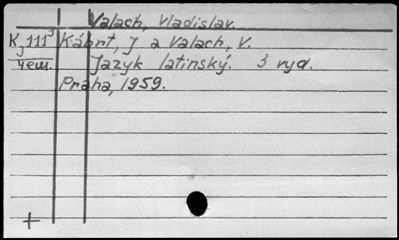 Valach, Vladislav.
K 111³ Kábrt, J a Valach, V.
J чеш. Jazyk latinský. 3 vyd.
Praha, 1959.